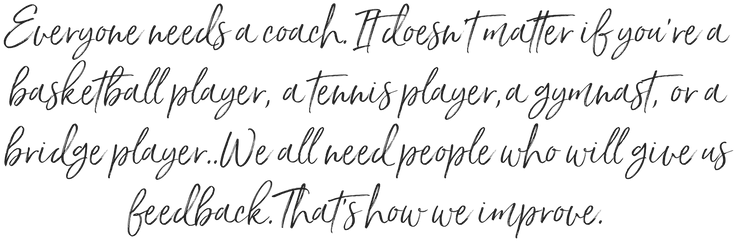 Everyone needs a coach. It doesn't matter if you're a
basketball player, a tennis player, a gymnast, or a
bridge player..We all need people who will give us
feedback. That's how we improve.